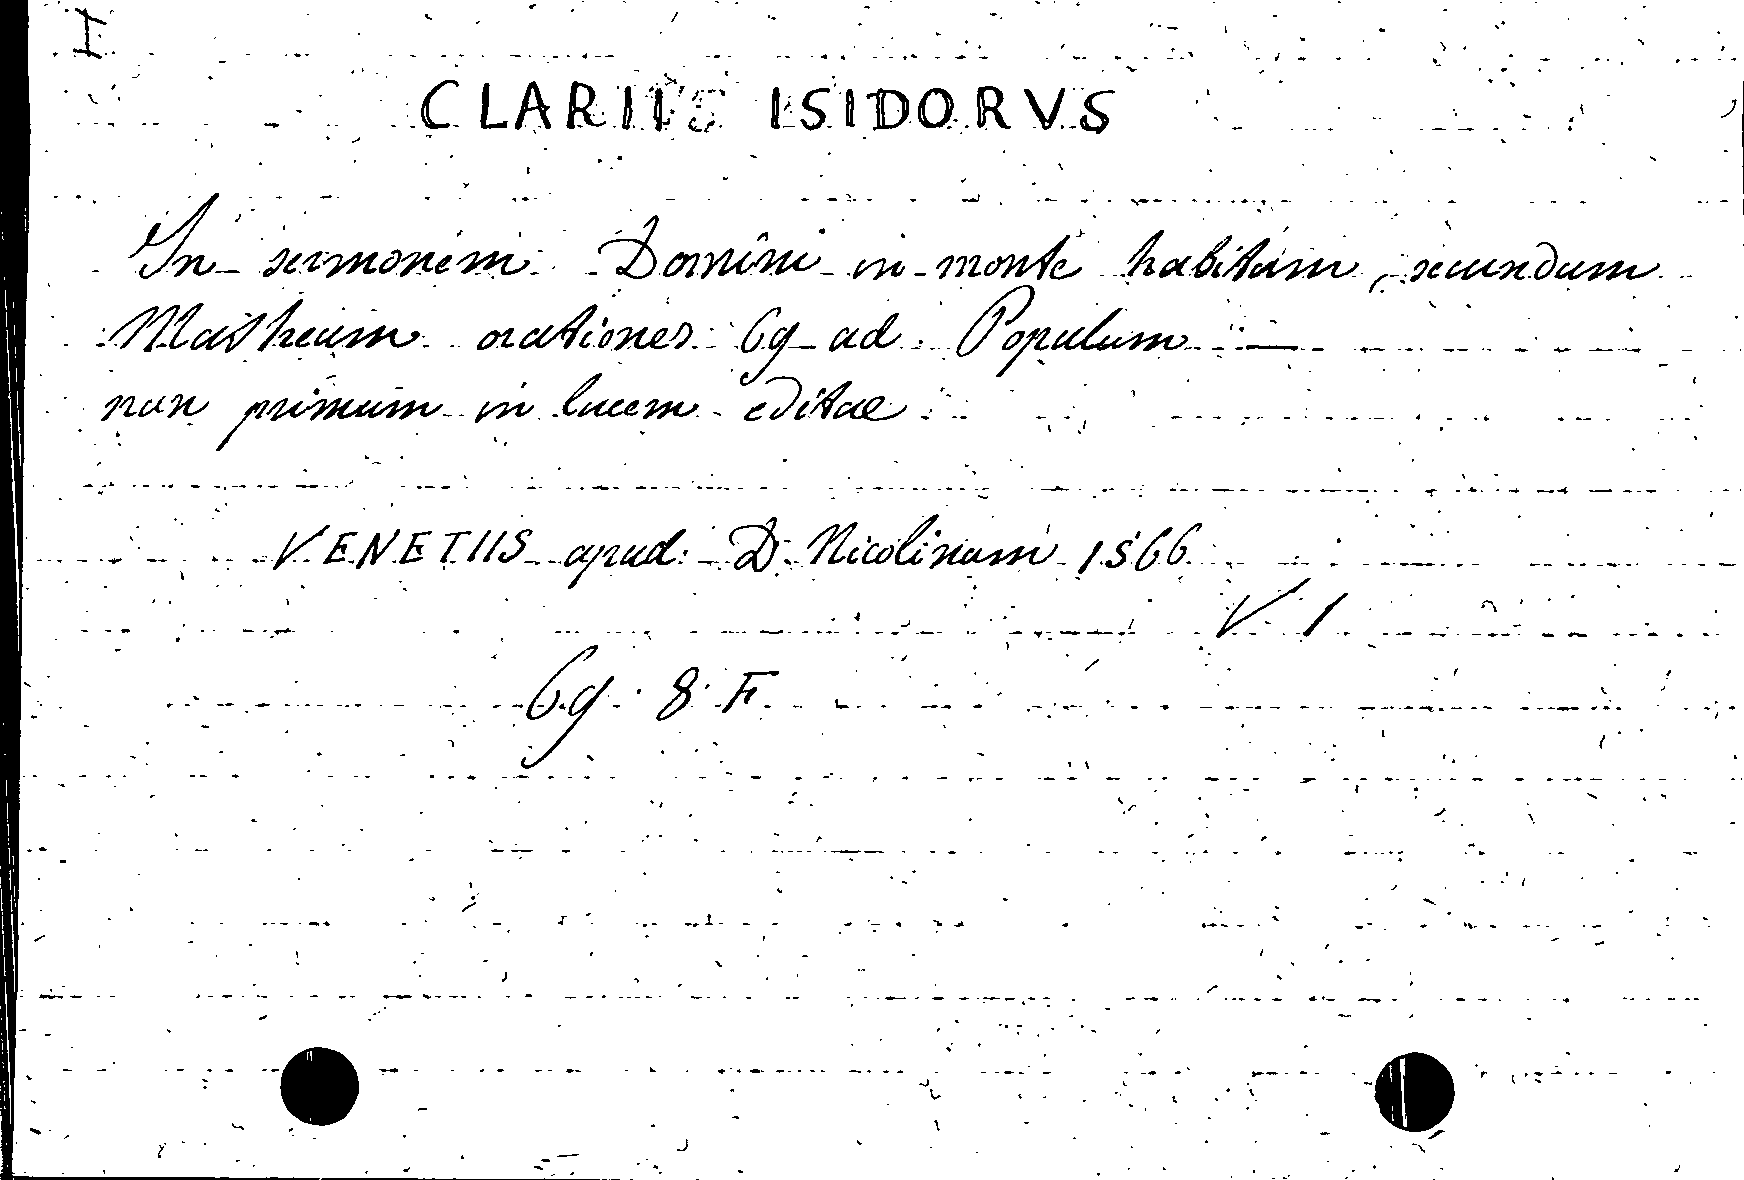 I
CLARIUS ISIDORVS
In sermonem Domini in monte habitum, secundum
Matheum orationes 69 ad Populum —
nun primum in lucem editae
VENETIIS apud D. Nicolinum 1566
V 1
69. 8. F